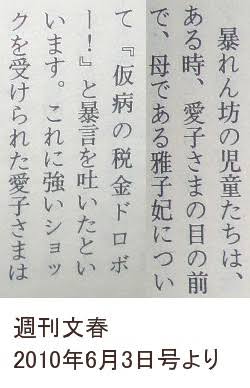 暴れん坊の児童たちは、
ある時、愛子さまの目の前
で、母である雅子妃につい
て『仮病の税金ドロボ
ー！』と暴言を吐いたとい
います。これに強いショッ
クを受けられた愛子さまは
週刊文春
2010年6月3日号より